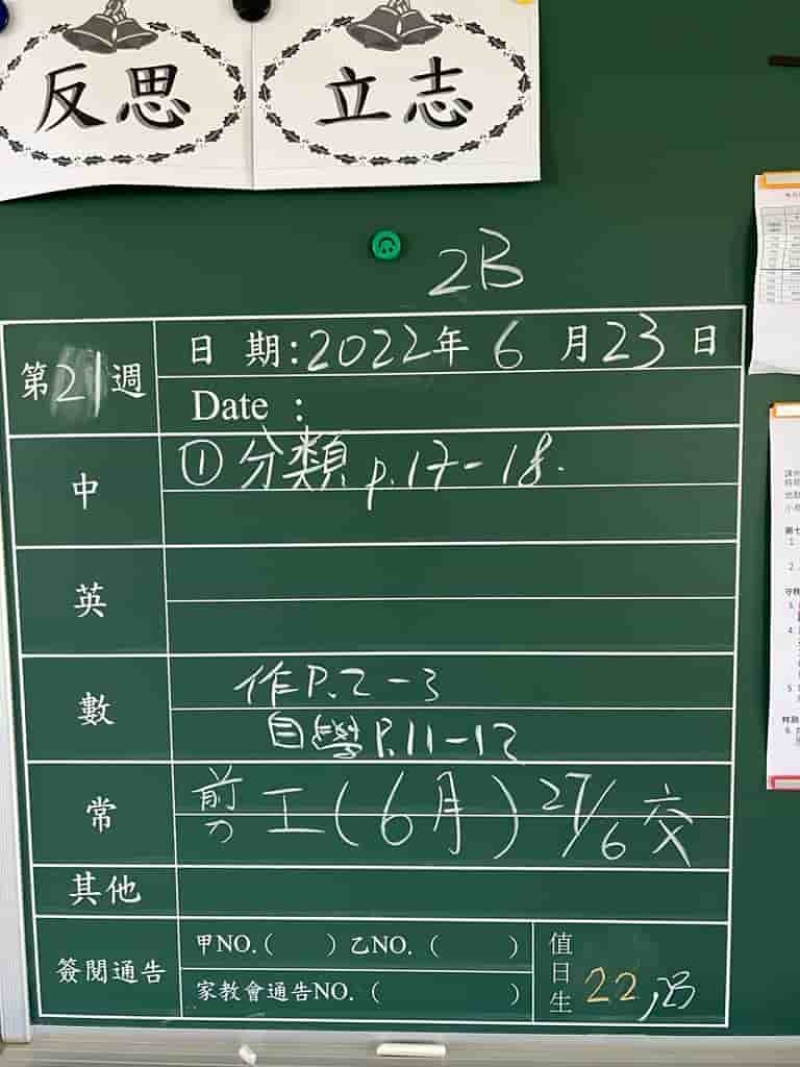 反思 立志
2B
第21週
日 期:2022年 6 月23日
Date :
中
①分類 p.17-18.
英
數
作P.2-3
自學P.11-12
常
剪工(6月) 27/6 交
其他
簽閱通告
甲NO.( ) 乙NO. ( )
家教會通告NO. ( )
值日生 22,23